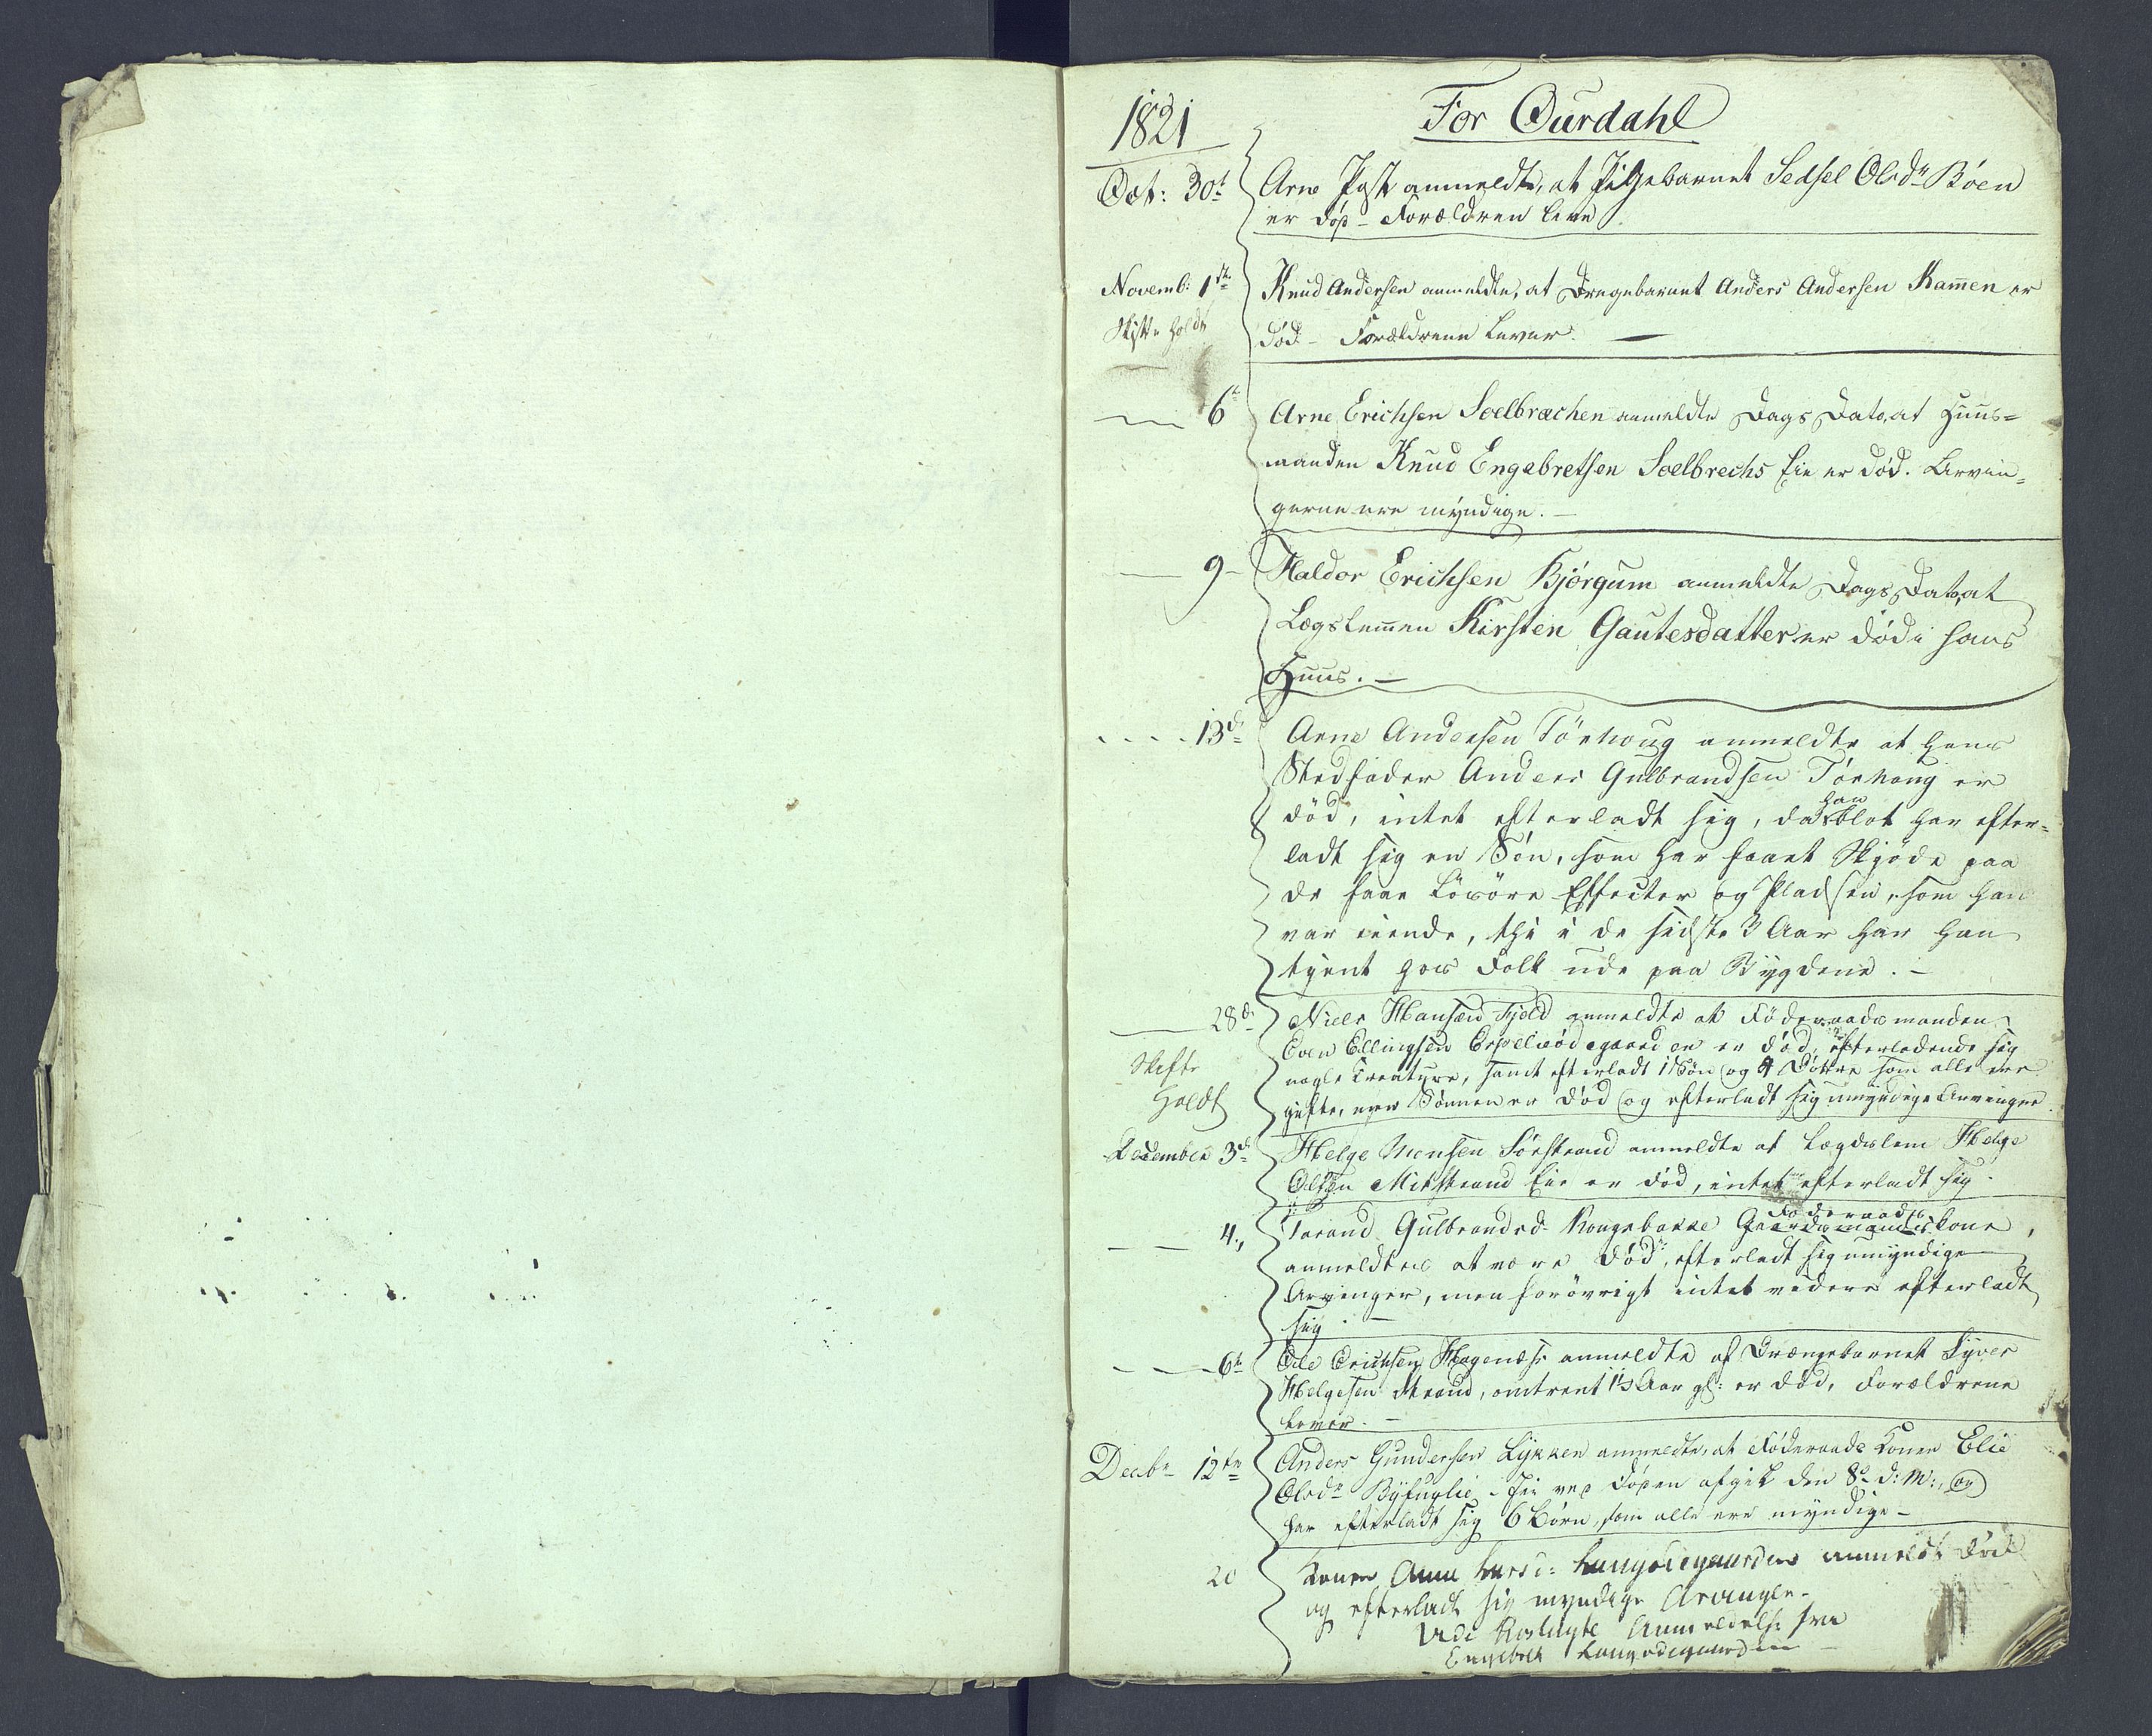 1821
For Ourdahl
Oct: 30t Arne anmeldte, at Pigebarnet Sedsel Olsdr Bøen
er død – Forældren leve
Novemb: 1ste Knud Andersen anmeldte, at Drengebarnet Anders Andersen Kamen er
Skifte holdt død – Forældrene Lever. —
— 6te Arne Erichsen Soelbræchen anmeldte Dags Dato, at Huus-
manden Knud Engebretsen Soelbrechs Eie er død. Arvin-
gerne ere myndige. —
— 9 – Haldor Erichsen Bjørgum anmeldte Dags Dato, at
Lægslemen Kirsten Gautesdatter er død i hans
Huus. —
13d Arne Andersen Tørhoug anmeldte at hans
Stedfader Anders Gulbrandsen Tørhoug er
død, intet efterladt sig, da han blot har efter-
ladt sig en Søn, som har faaet Skjøde paa
de faae Løsøre Effecter og Pladsen, som han
var eiende, thi i de sidste 3 Aar har han
tjent hos Folk ude paa Bygdene. —
— 28de Niels Hansen Fjeld anmeldte at Føderaadsmanden
Even Ellingsen er død, efterladende sig
Skifte nogle Creature, samt efterladt 1 Søn og 4 Døttre som alle ere
Holdt gifte, men Sønnen er død og efterladt sig umyndige Arvinger.
December 3de Helge Monsen Sørstrand anmeldte at Lægdslem Helge
Olsen Midstrand Eie er død, intet efterladt sig.
— 4., Tarand Gulbrandsd. Kongsbakke Føderaads Gaardmandskone,
anmeldtes at være død, efterladt sig umyndige
Arvinger, men forøvrigt intet videre efterladt
sig. —
— 6te Ole Erichsen Hagenæs anmeldte at Drængebarnet Syver
Helgesen Strand, omtrent 1½ Aar gl: er død, Forældrene
lever. —
Decbr 12te Anders Gundersen Lykken anmeldte, at Føderaads Konen Elie
Olsdr Byfuglie Eie ved Døden afgik den 8de d: M:, og
har efterladt sig 6 Børn, som alle ere myndige –
20 Konen Anne Larsd: Haugødegaarden anmeldt død
og efterladt sig myndige Arvinger.
Vide Anmeldelse fra
Engebret Haugødegaarden —